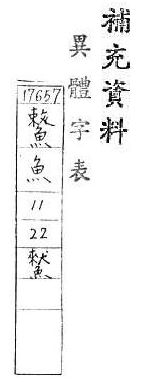 補充資料
異體字表
17657
魚
11
22